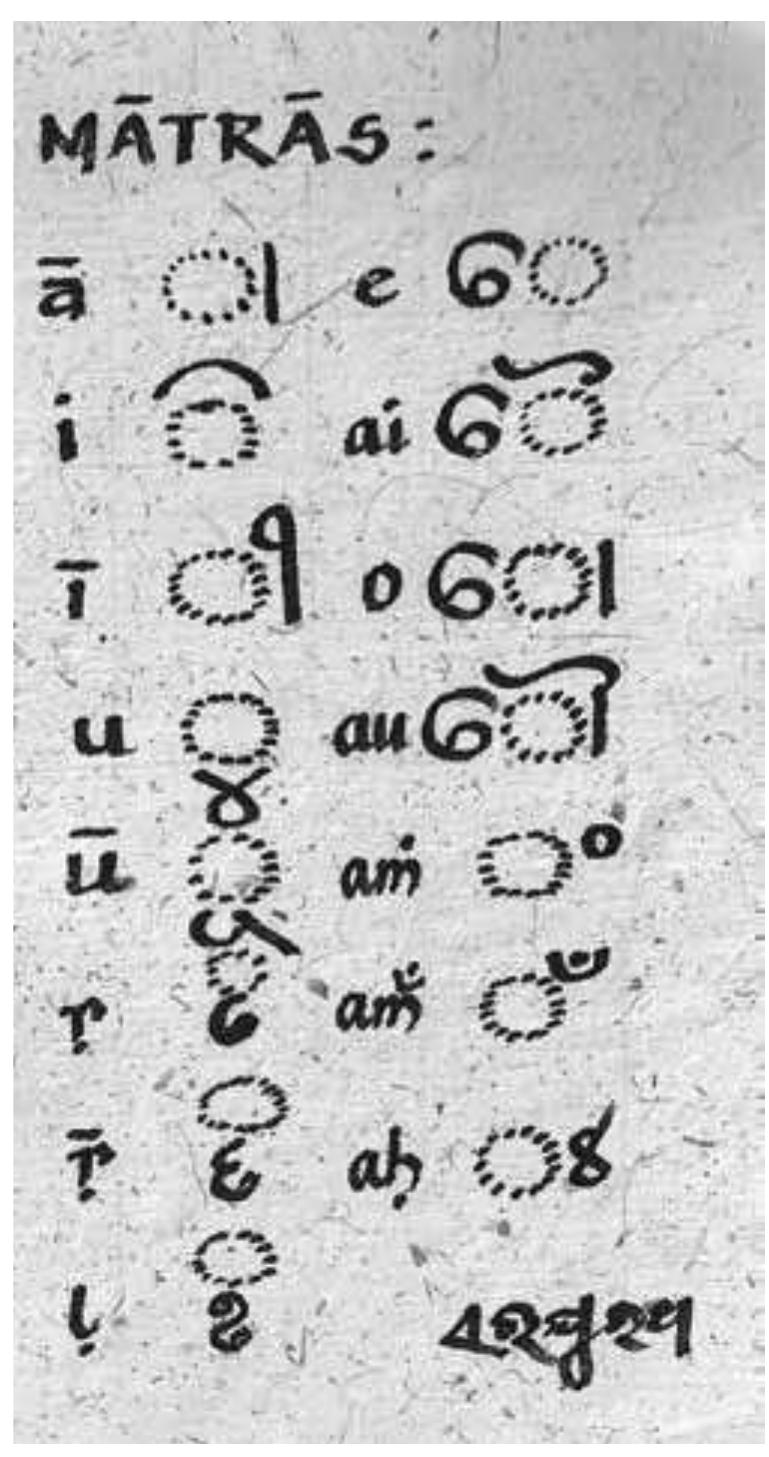 MĀTRĀS:
ā ◌ା e ◌େ
i ◌ି ai ◌ୈ
ī ◌ୀ o ◌ୋ
u ◌ୁ au ◌ୌ
ū ◌ୂ aṁ ◌ଂ
ṛ ◌ୃ am̐ ◌ଁ
ṝ ◌ୄ aḥ ◌ଃ
ḷ ◌ୢ